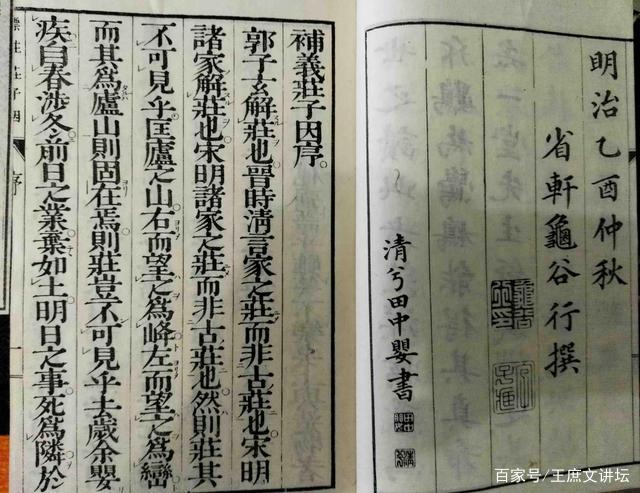 明治乙酉仲秋
省軒龜谷行撰
清兮田中嬰書
補義莊子因序
郭子玄解莊也晉時淸言家之莊而非古莊也宋明
諸家解莊也宋明諸家之莊而非古莊也然則莊其
不可見乎匡廬之山右而望之爲峰左而望之爲巒
而其爲廬山則固在焉則莊豈不可見乎去歲余嬰
疾自春涉冬前日之業棄如土明日之事死爲隣於
標注莊子因
序
一
百家号/王庶文讲坛